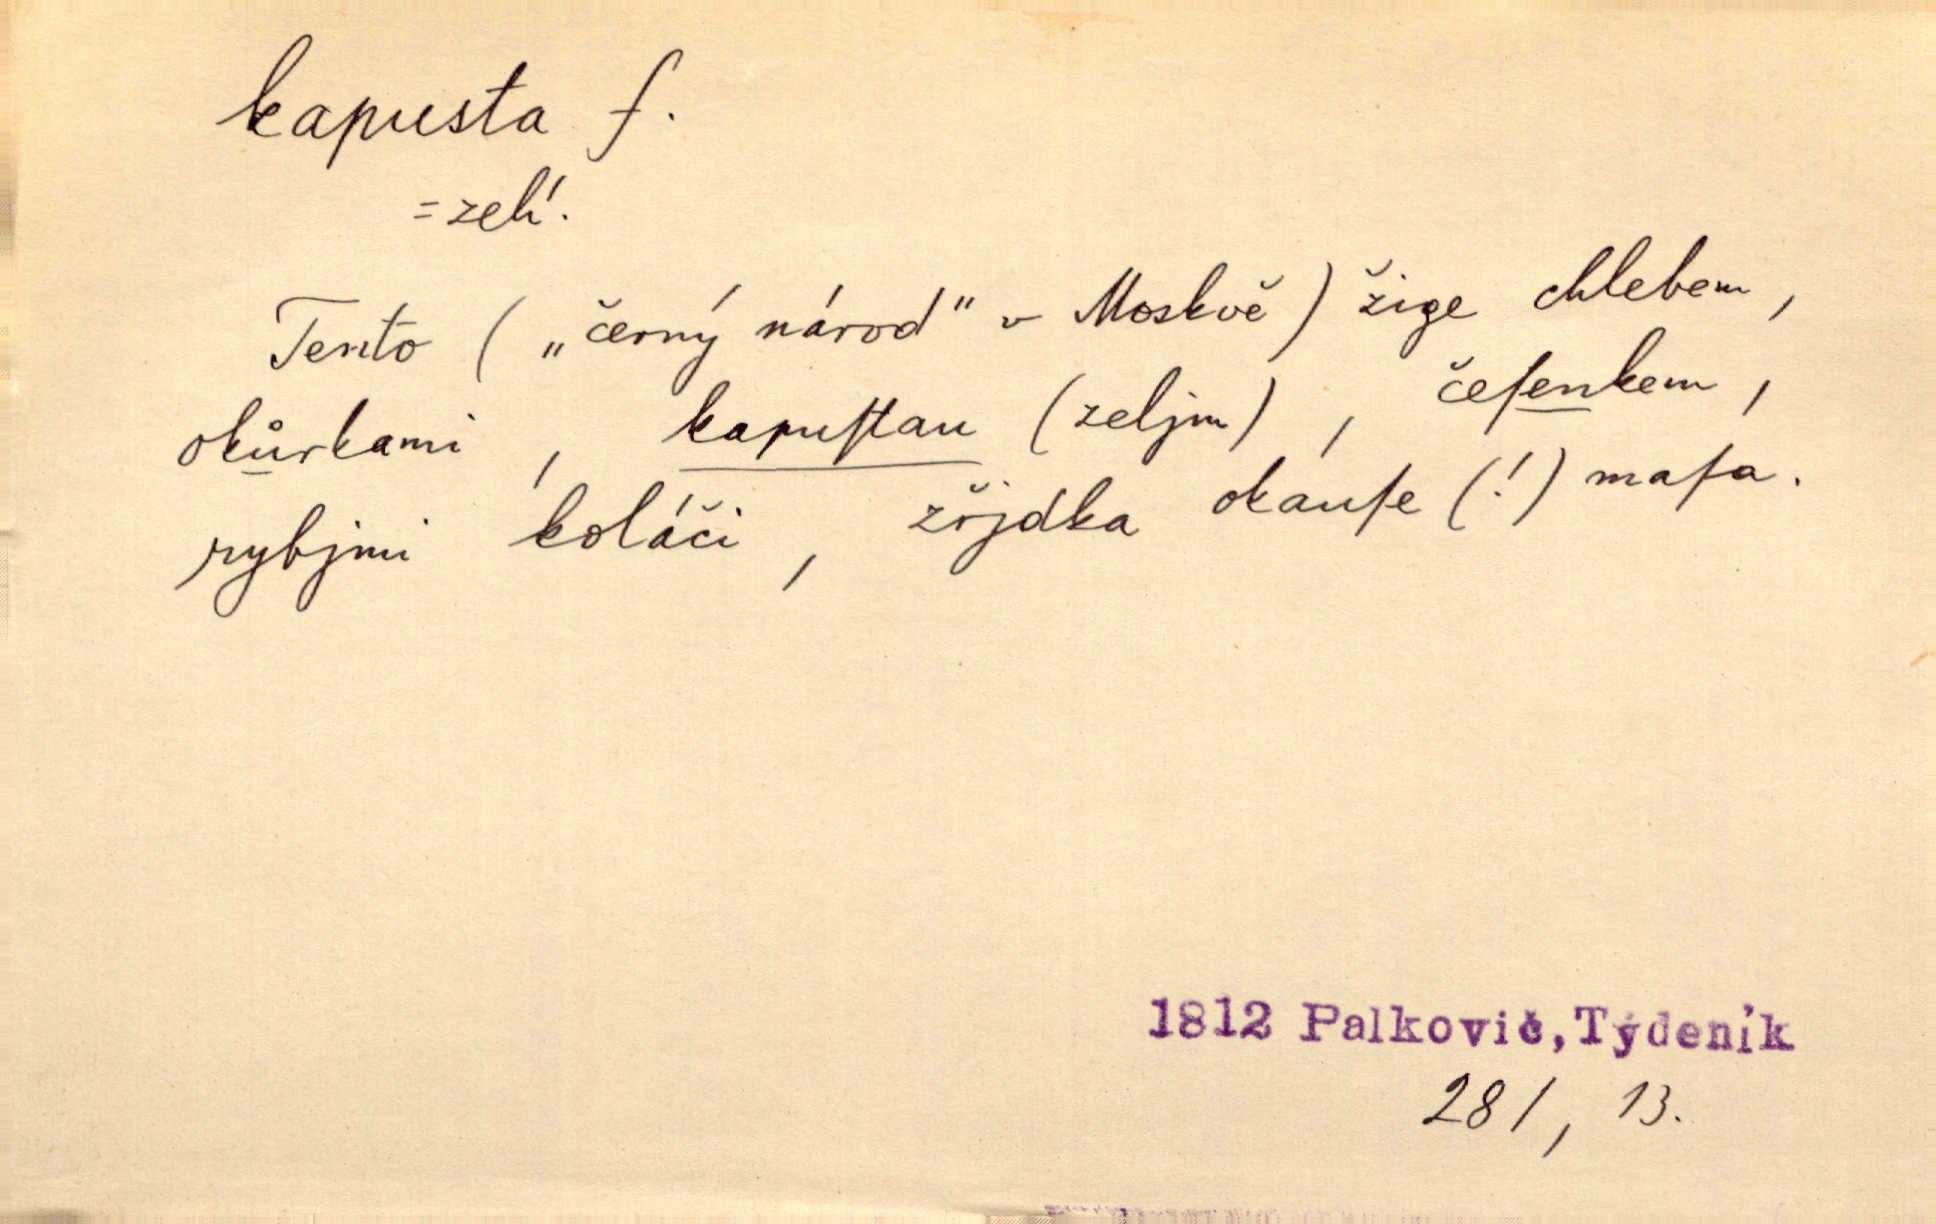 kapusta f.
= zelí.
Tento ( „černý národ" v Moskvě ) žige chlebem,
okůrkami, kapuſtau (zeljm), čeſenkem,
rybjmi koláči, zřjdka okauſe (!) maſa.
1812 Palkovič, Týdeník
281, 13.